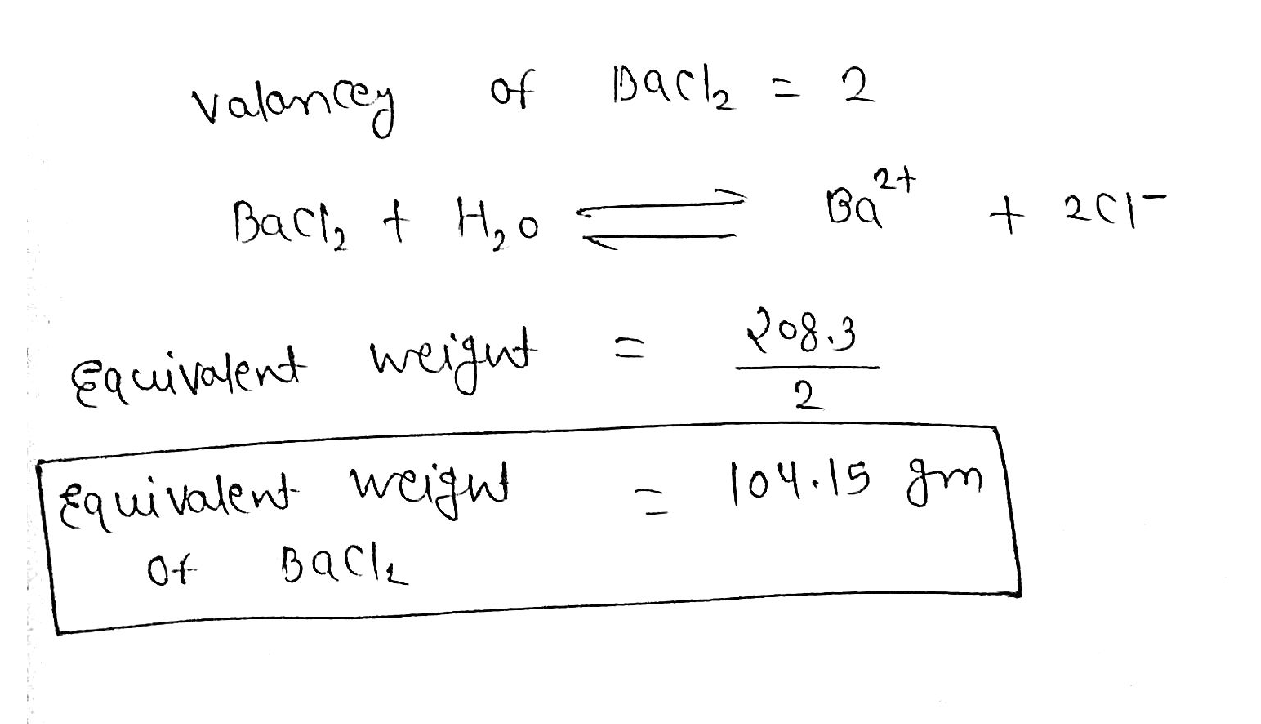 valancey of BaCl₂ = 2
BaCl₂ + H₂O ⇌ Ba²⁺ + 2Cl⁻
Equivalent weignt = 208.3
2
Equivalent weignt = 104.15 gm
Of BaCl₂